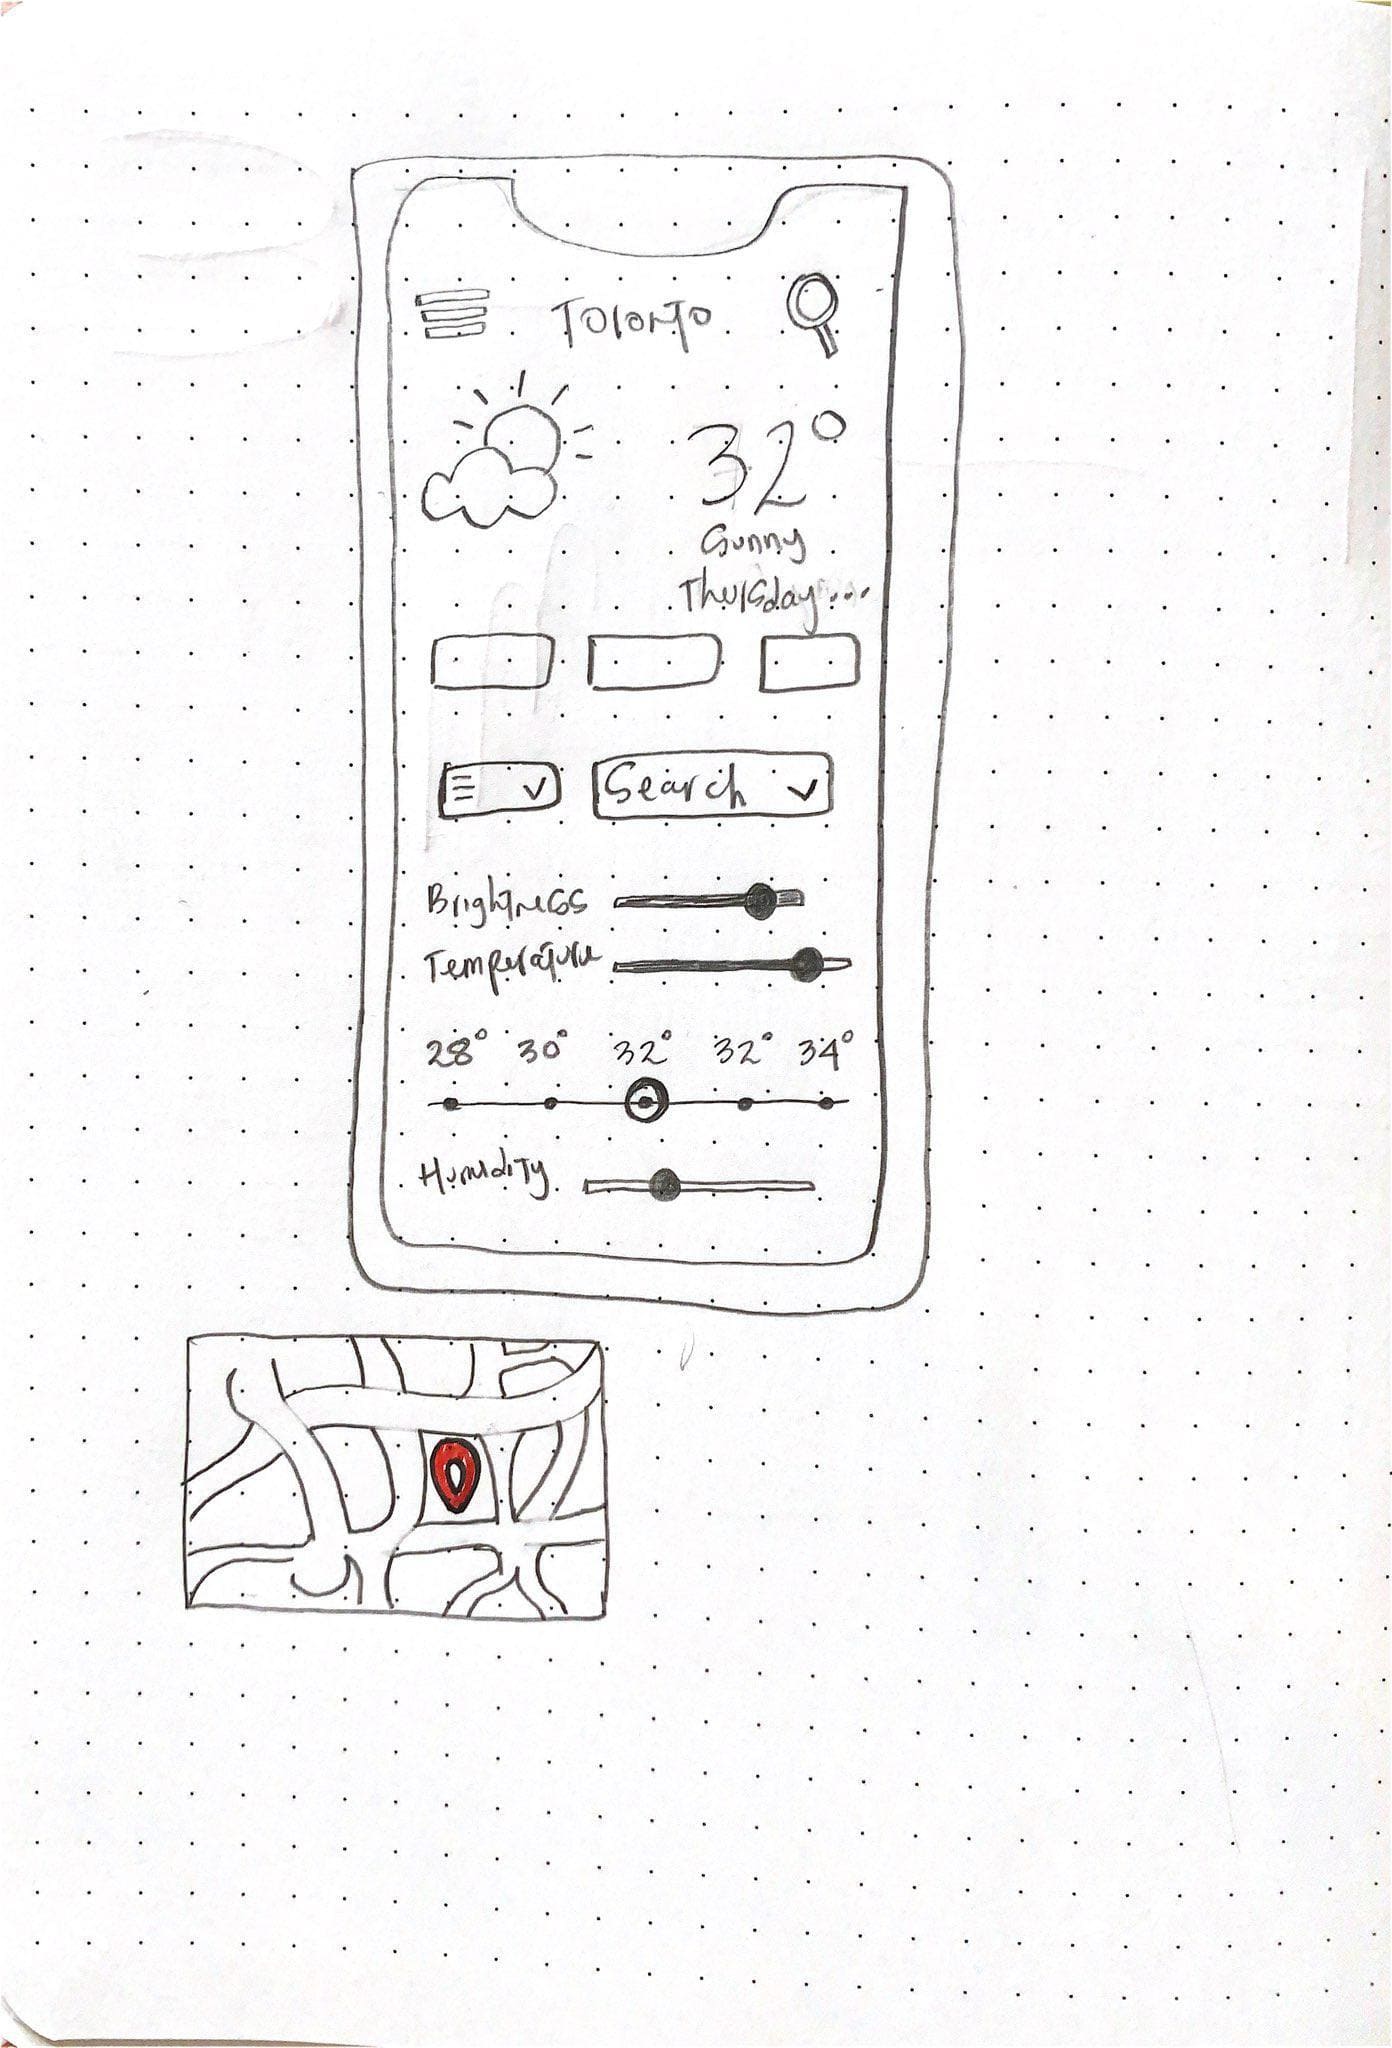 Toronto
32°
Sunny
Thursday...
Search
Brightness
Temperature
28° 30° 32° 32° 34°
Humidity